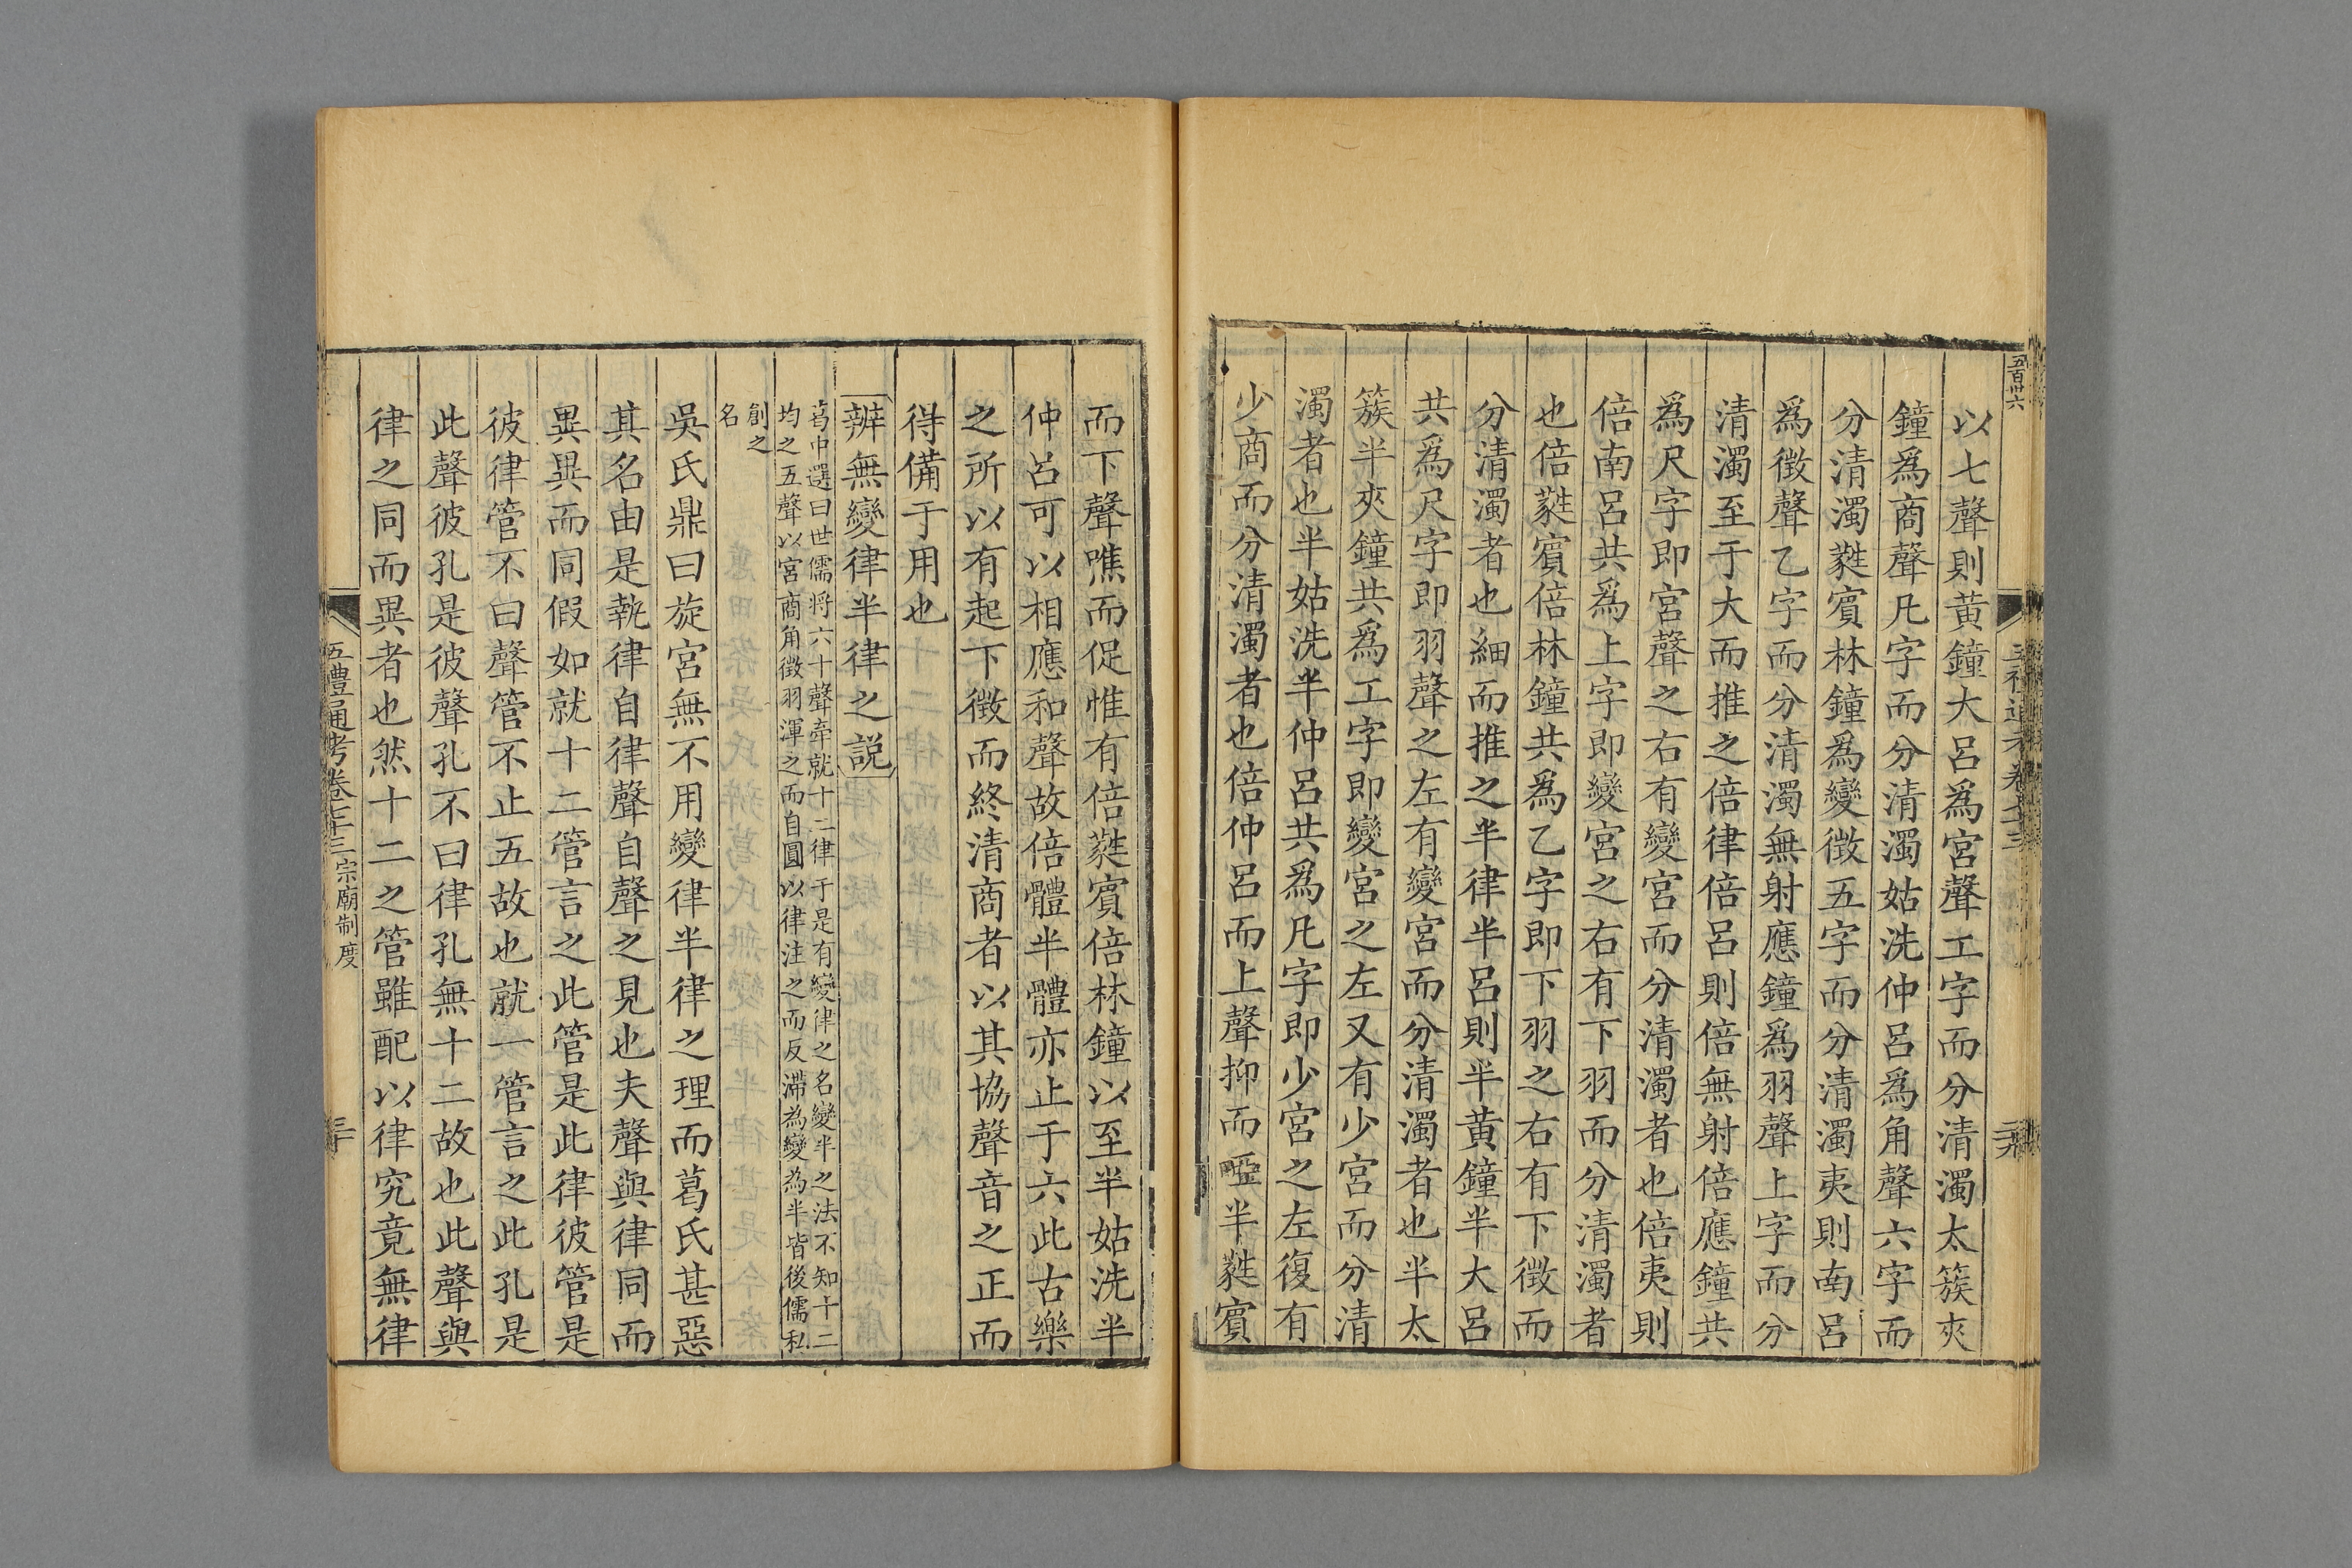 五百卅六
以七聲則黃鐘大呂爲宮聲工字而分清濁太簇夾
鐘爲商聲凡字而分清濁姑洗仲呂爲角聲六字而
分清濁蕤賓林鐘爲變徵五字而分清濁夷則南呂
爲徵聲乙字而分清濁無射應鐘爲羽聲上字而分
清濁至于大而推之倍律倍呂則倍無射倍應鐘共
爲尺字即宮聲之右有變宮而分清濁者也倍夷則
倍南呂共爲上字即變宮之右有下羽而分清濁者
也倍蕤賓倍林鐘共爲乙字即下羽之右有下徵而
分清濁者也細而推之半律半呂則半黃鐘半大呂
共爲尺字即羽聲之左有變宮而分清濁者也半太
簇半夾鐘共爲工字即變宮之左又有少宮而分清
濁者也半姑洗半仲呂共爲凡字即少宮之左復有
少商而分清濁者也倍仲呂而上聲抑而啞半蕤賓
而下聲噍而促惟有倍蕤賓倍林鐘以至半姑洗半
仲呂可以相應和聲故倍體半體亦止于六此古樂
之所以有起下徵而終清商者以其協聲音之正而
得備于用也
辨無變律半律之説
葛中選曰世儒將六十聲牽就十二律于是有變律之名變半之法不知十二
均之五聲以宮商角徵羽渾之而自圓以律注之而反滯為變為半皆後儒私
創之
名
吳氏鼎曰旋宮無不用變律半律之理而葛氏甚惡
其名由是執律自律聲自聲之見也夫聲與律同而
異異而同假如就十二管言之此管是此律彼管是
彼律管不曰聲管不止五故也就一管言之此孔是
此聲彼孔是彼聲孔不曰律孔無十二故也此聲與
律之同而異者也然十二之管雖配以律究竟無律
五禮通考卷七十三 宗廟制度
三十